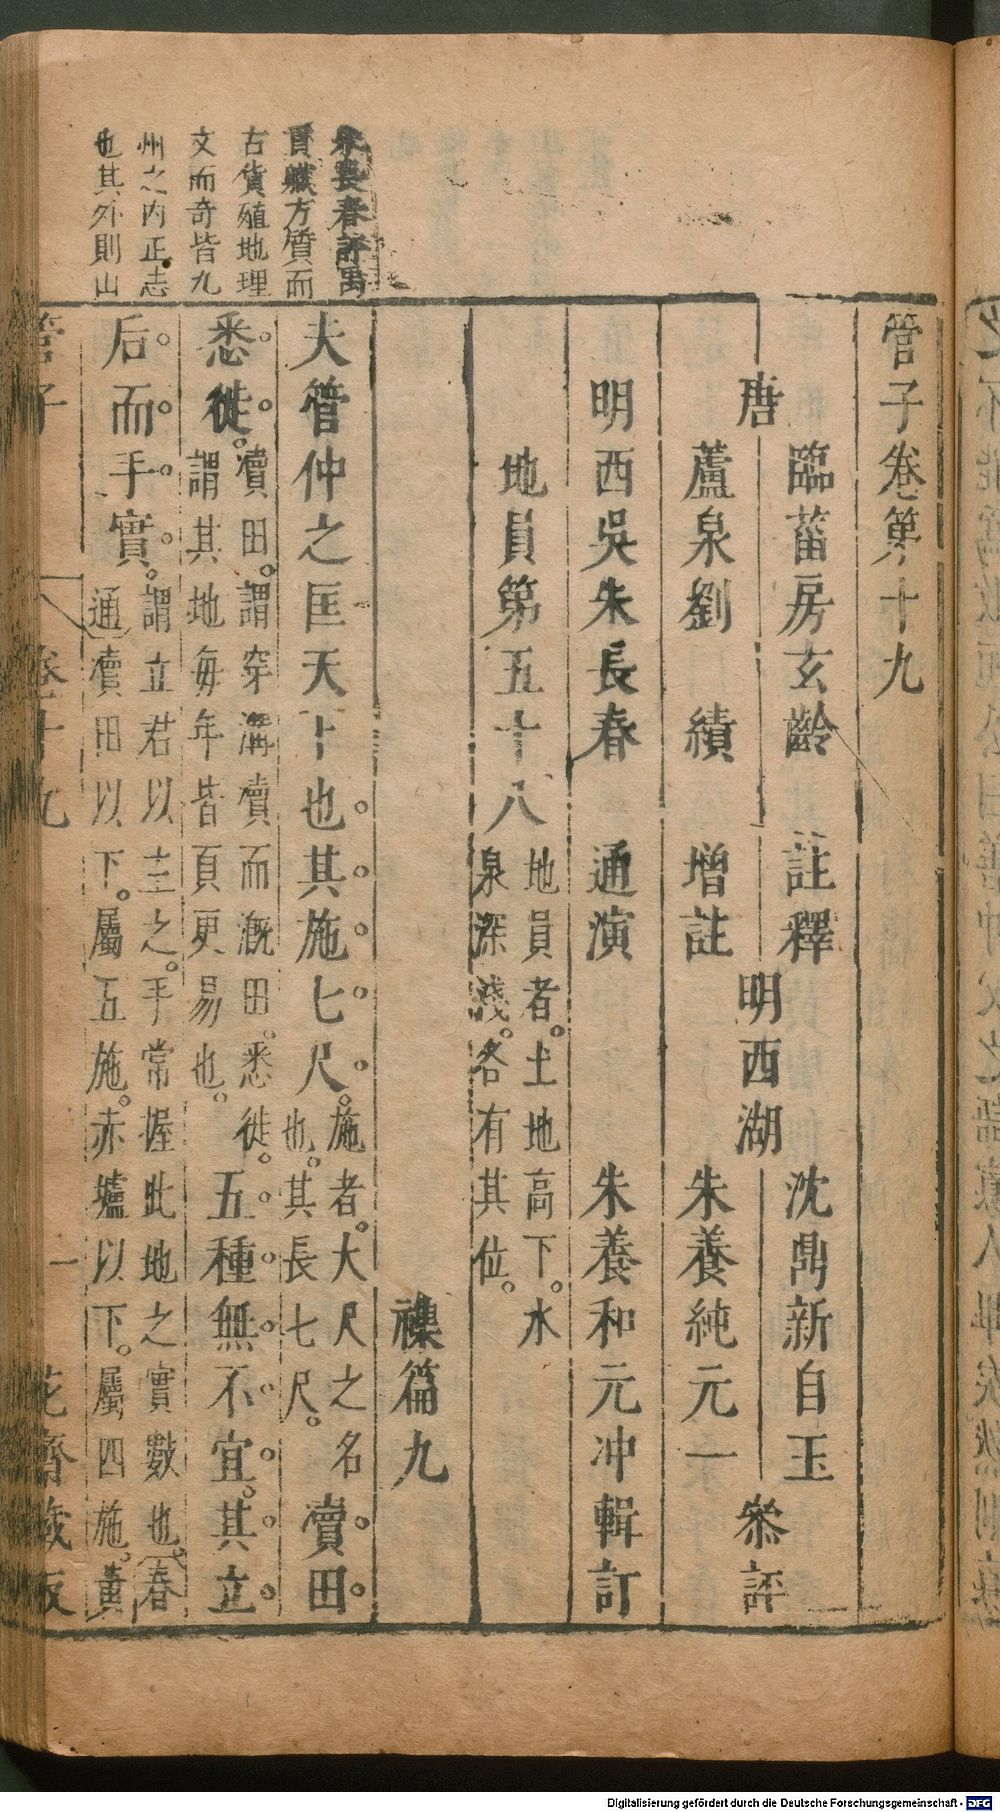 管子卷第十九
唐
臨菑房玄齡 註釋
蘆泉劉 績 增註
明西湖
沈鼎新自玉
朱養純元一
叅評
明西吳朱長春 通演 朱養和元冲輯訂
地員第五十八
地員者。土地高下。水
泉深淺。各有其位。
襍篇九
夫管仲之匡天下也。其施七尺。
施者。大尺之名
也。其長七尺。
瀆田
悉徙。
瀆田。謂穿溝瀆而溉田。悉徙。
謂其地每年皆須更易也。
五種無不宜。其立
后而手實。
謂立君以主之。手常握此地之實數也 春
通瀆田以下。屬五施。赤壚以下。屬四施。黃
朱長春評禹
貢幟方質而
古貨殖地理
文而奇皆九
州之内正志
也其外則山
管子
卷十九
一
花齋藏板
Digitalisierung gefördert durch die Deutsche Forschungsgemeinschaft - DFG